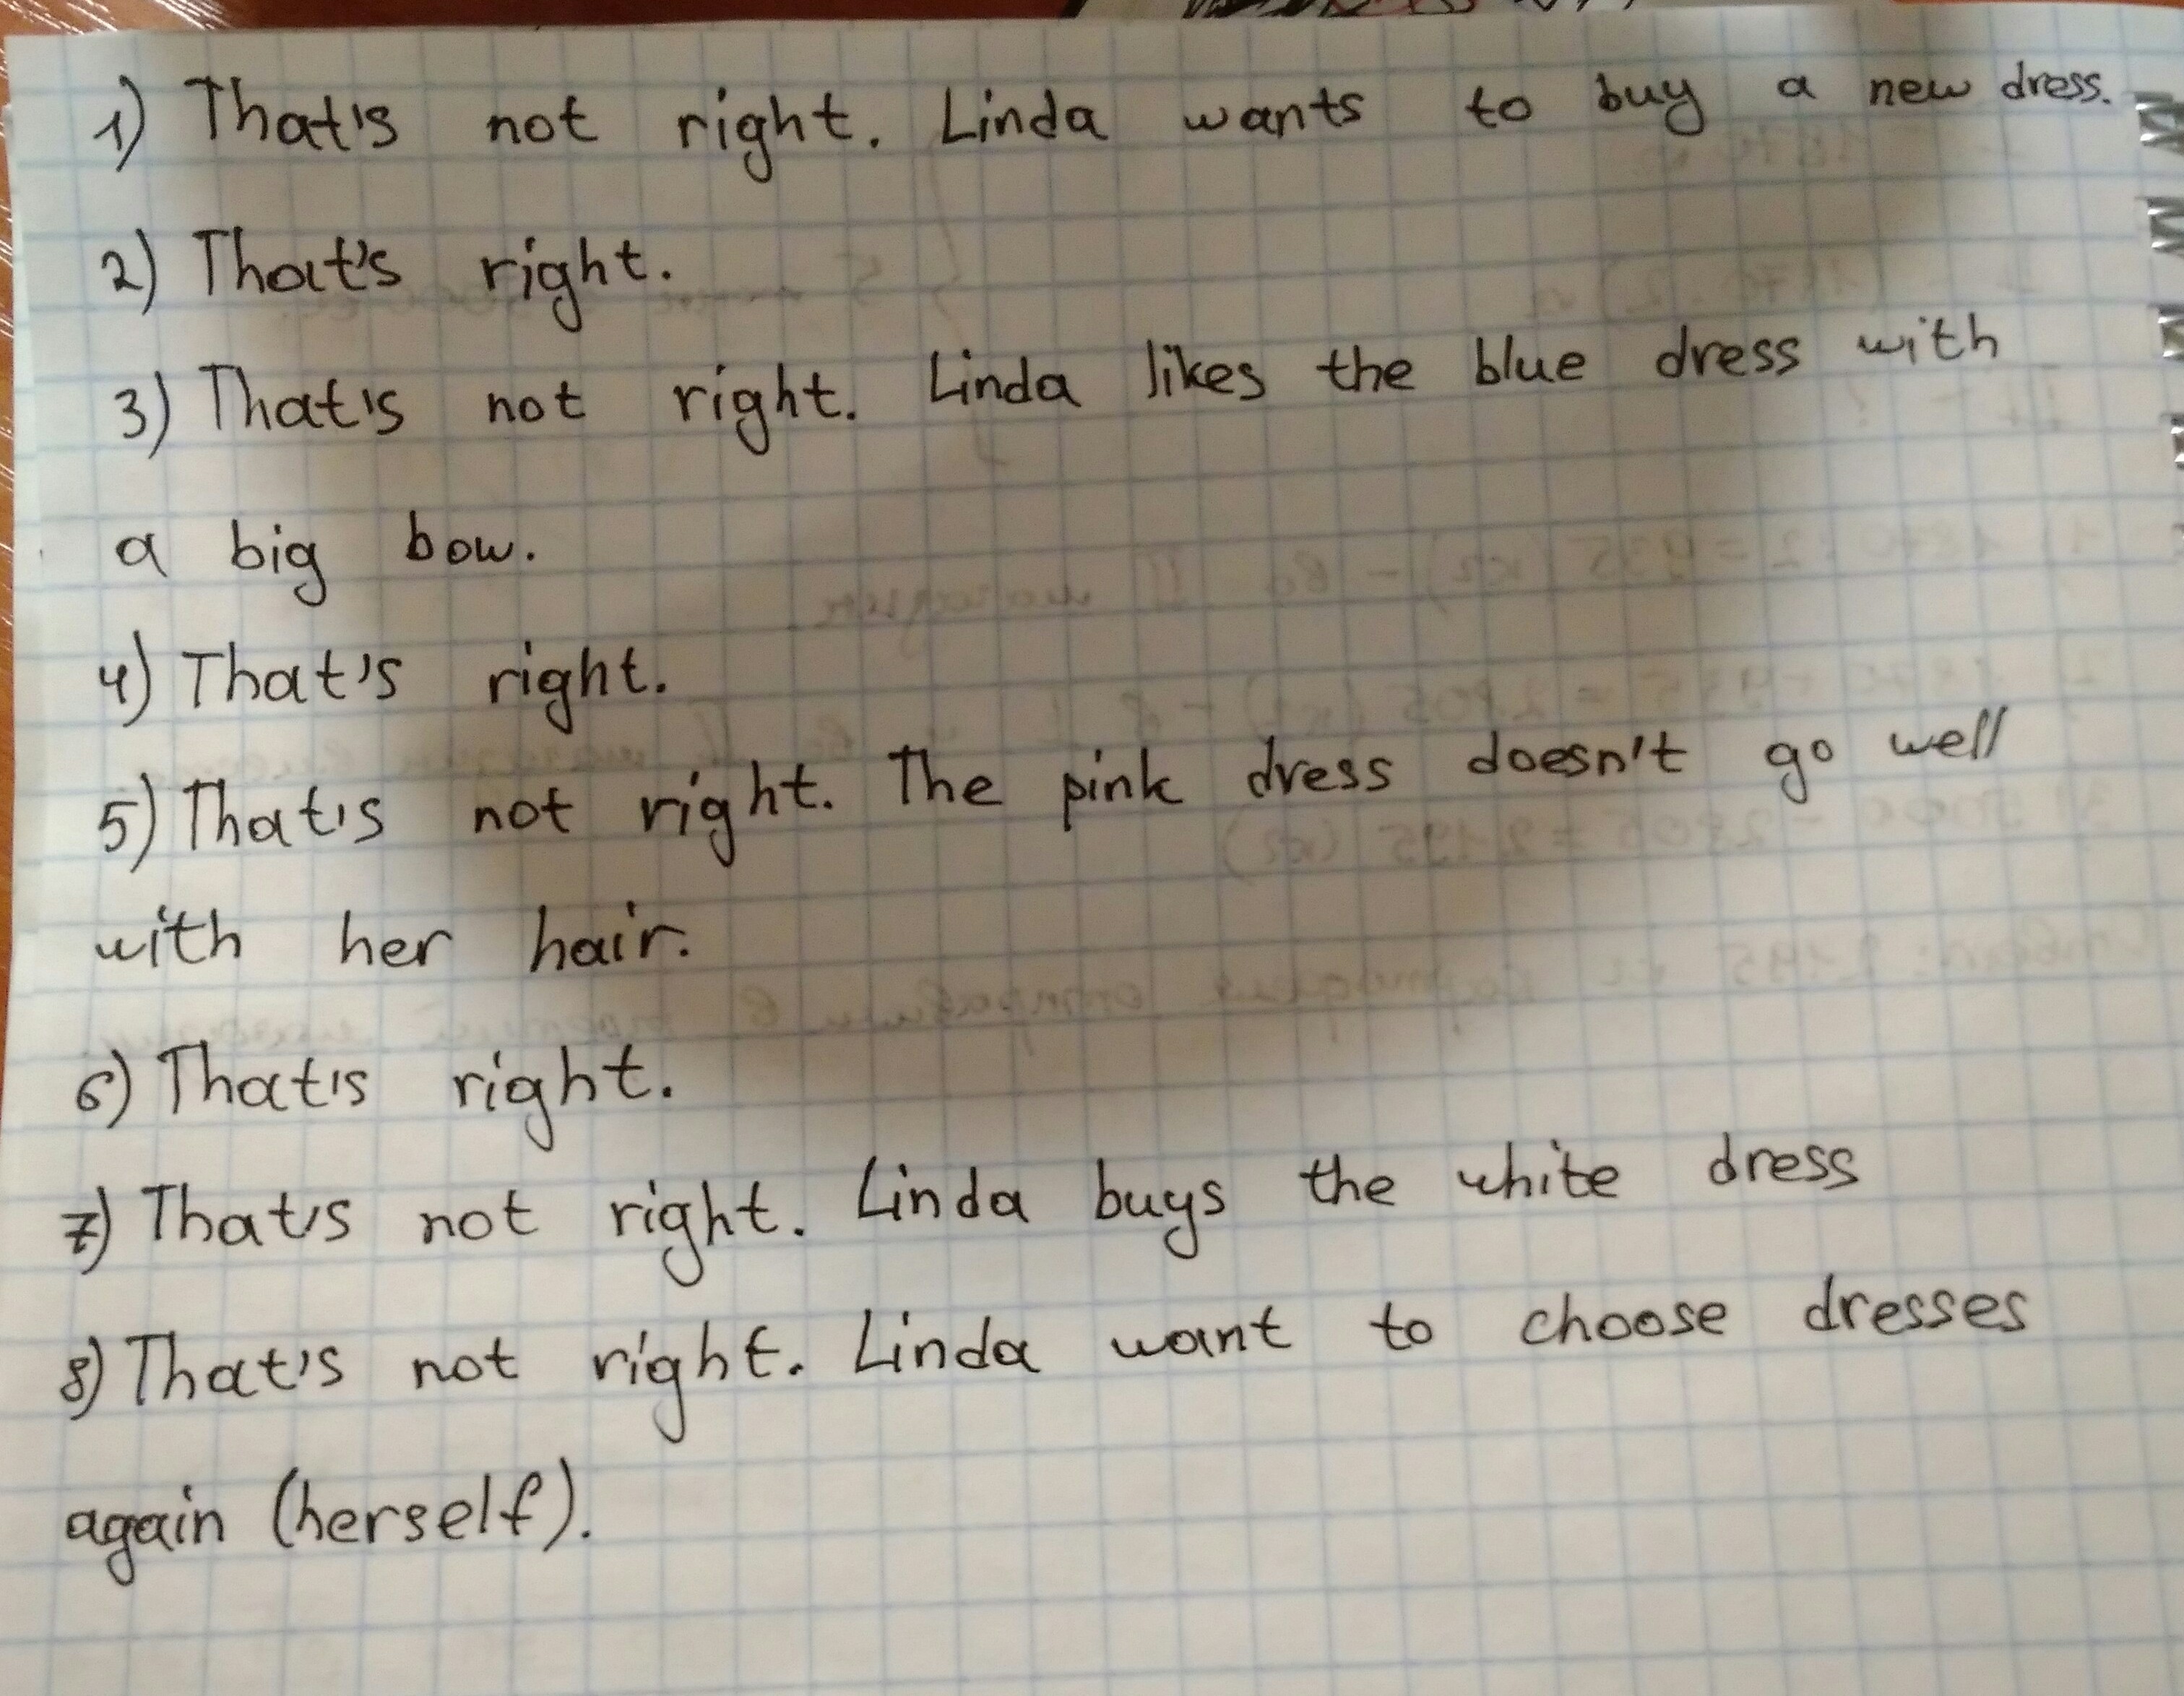 1) That's not right. Linda wants to buy a new dress.
2) That's right.
3) That's not right. Linda likes the blue dress with
a big bow.
4) That's right.
5) That's not right. The pink dress doesn't go well
with her hair.
6) That's right.
7) That's not right. Linda buys the white dress
8) That's not right. Linda want to choose dresses
again (herself).